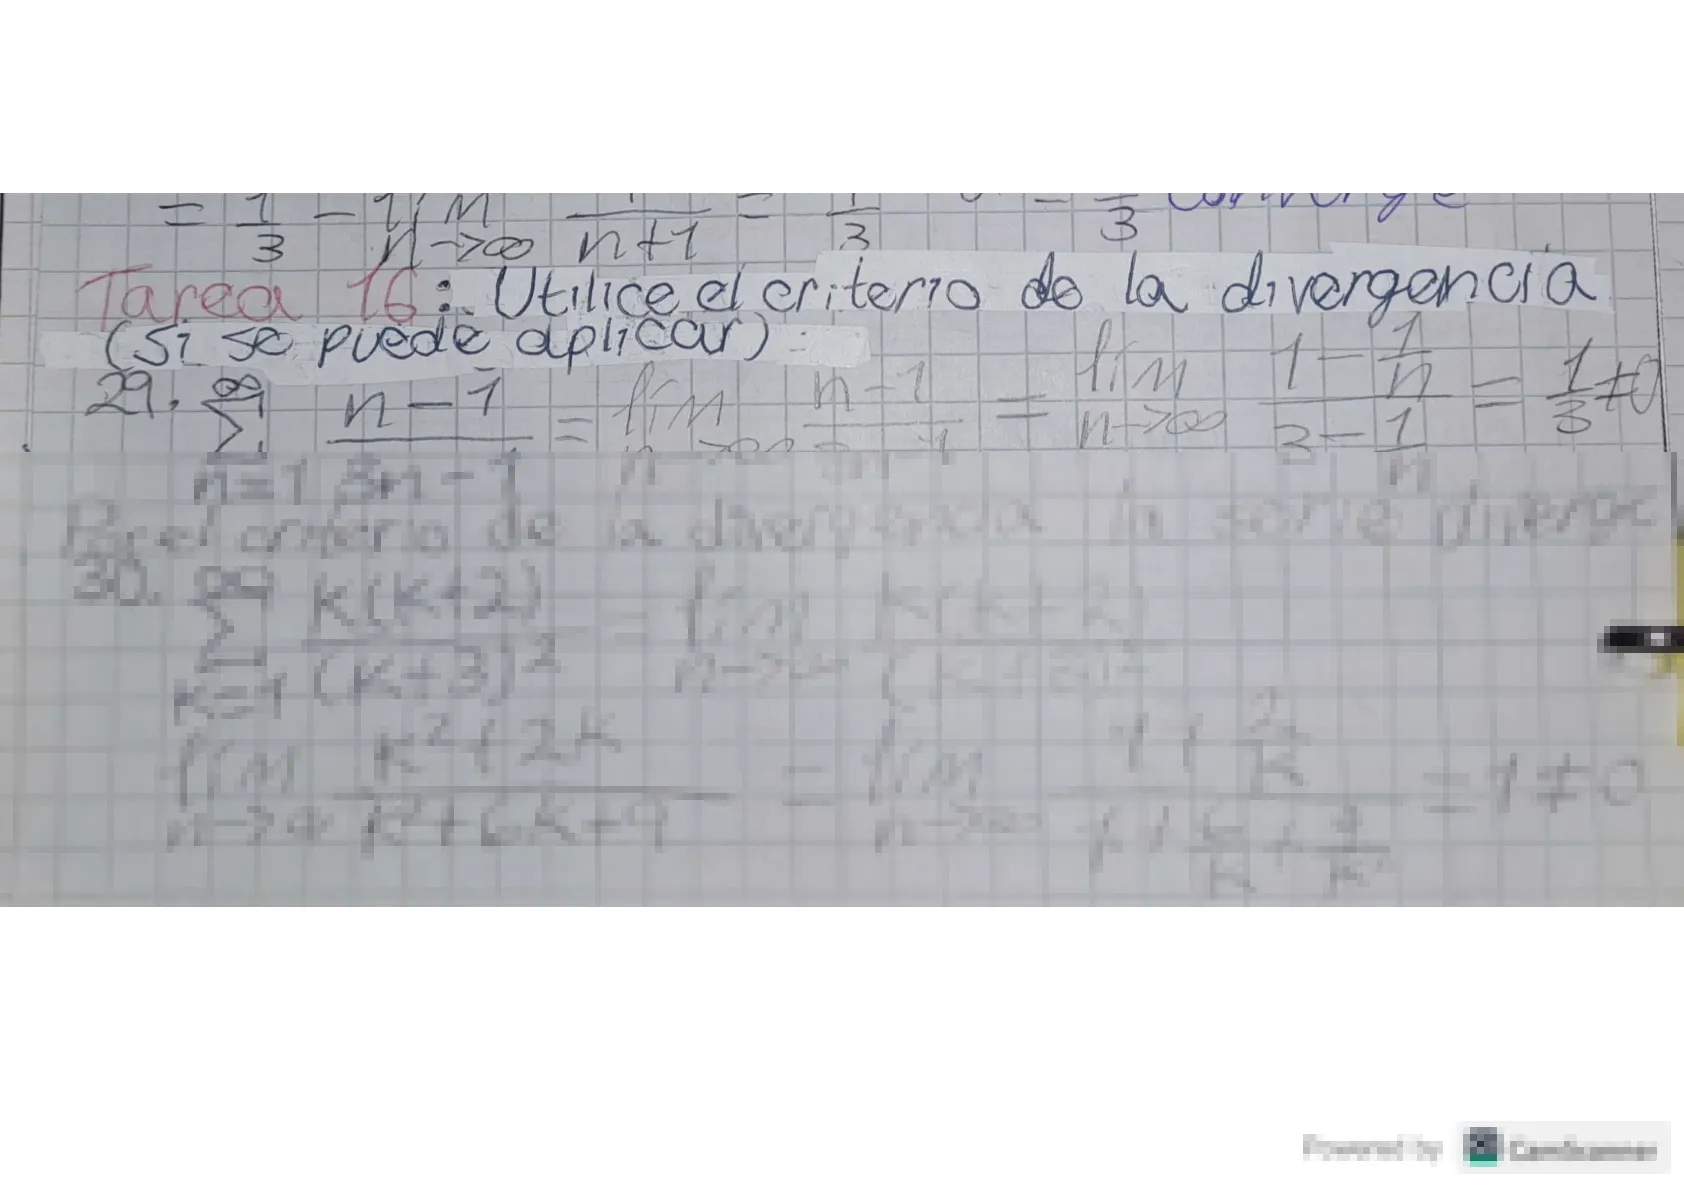 = 1/3 - lím n→∞ 1/(n+1) = 1/3 - 0 = 1/3 converge
Tarea 16: Utilice el criterio de la divergencia
(si se puede aplicar):
29. ∞ Σ n=1 (n-1)/(3n-1) = lím n→∞ (n-1)/(3n-1) = lím n→∞ (1 - 1/n)/(3 - 1/n) = 1/3 ≠ 0
Por el criterio de la divergencia la serie diverge
30. ∞ Σ K=1 K(K+2)/(K+3)² = lím n→∞ K(K+2)/(K+3)²
lím n→∞ (K²+2K)/(K²+6K+9) = lím n→∞ (1 + 2/K)/(1 + 6/K + 9/K²) = 1 ≠ 0
Powered by CamScanner